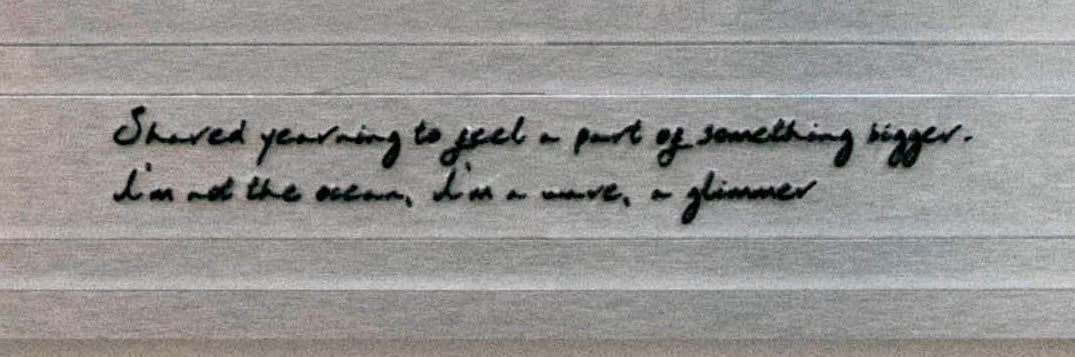 Shared yearning to feel a part of something bigger.
I'm not the ocean, I'm a wave, a glimmer